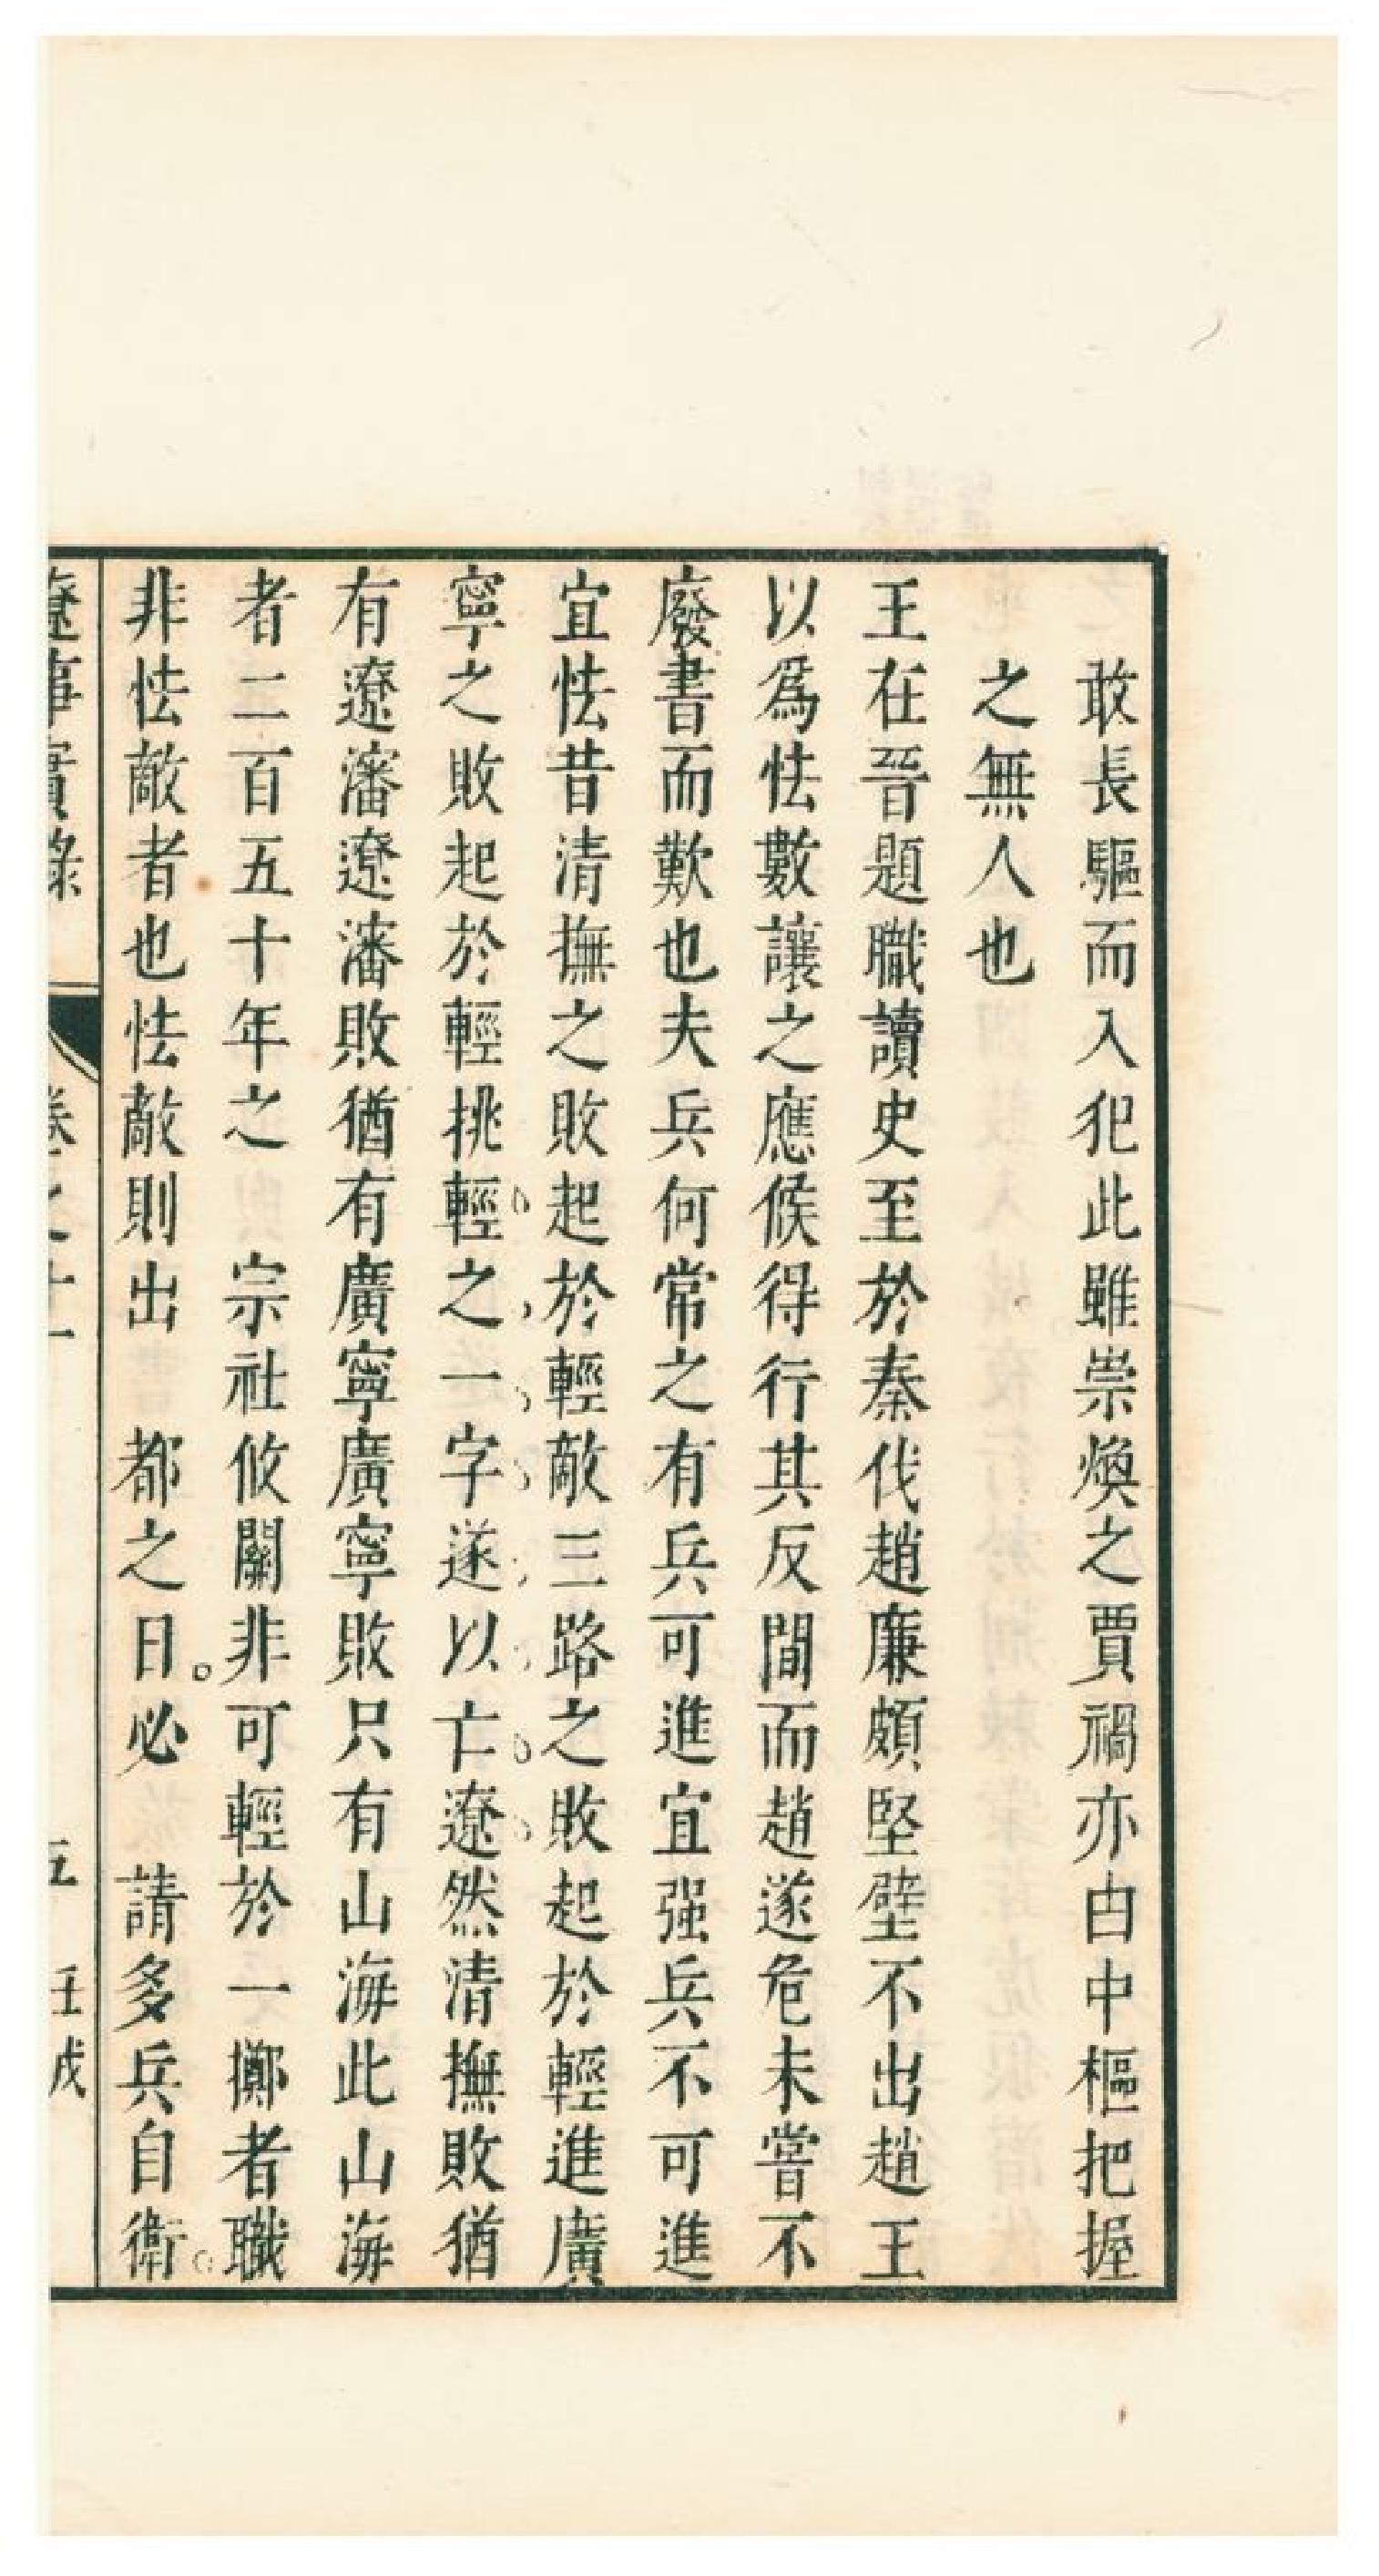 敢長驅而入犯此雖崇煥之賈禍亦由中樞把握
之無人也
王在晉題職讀史至於秦伐趙廉頗堅壁不出趙王
以爲怯數讓之應候得行其反間而趙遂危未嘗不
廢書而歎也夫兵何常之有有兵可進宜强兵不可進
宜怯昔清撫之敗起於輕敵三路之敗起於輕進廣
寧之敗起於輕挑輕之一字遂以亡遼然清撫敗猶
有遼瀋遼瀋敗猶有廣寧廣寧敗只有山海此山海
者二百五十年之　宗社攸關非可輕於一擲者職
非怯敵者也怯敵則出　都之日必　請多兵自衛
遼事實錄　卷之十一　五　壬戌